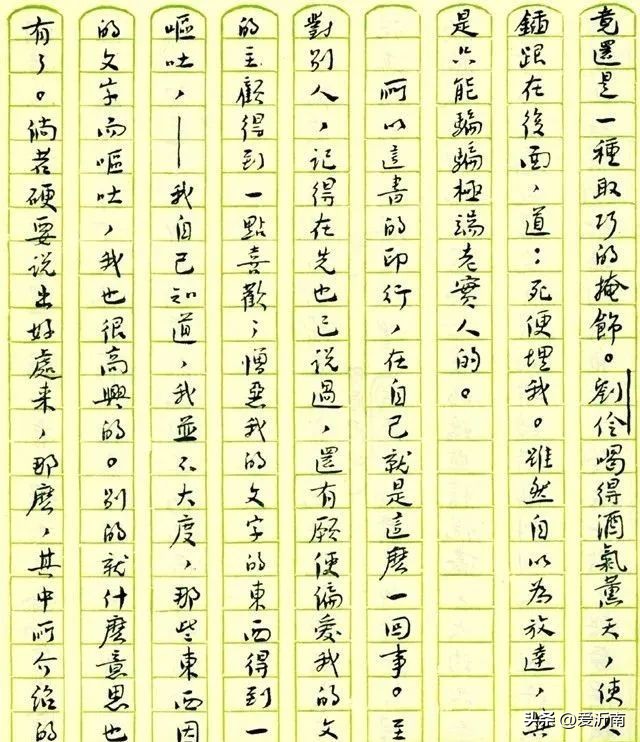 竟還是一種取巧的掩飾。劉伶喝得酒氣薰天，使人
鍤跟在後面，道：死便埋我。雖然自以為放達，其
是只能騙騙極端老實人的。
所以這書的印行，在自己就是這麼一回事。至
對別人，記得在先也已說過，還有願使偏愛我的文
的主顧得到一點喜歡；憎惡我的文字的東西得到一
嘔吐，——我自己知道，我並不大度，那些東西因
的文字而嘔吐，我也很高興的。别的就什麼意思也
有了。倘若硬要说出好處來，那麼，其中所介紹的
头条 @爱沂南